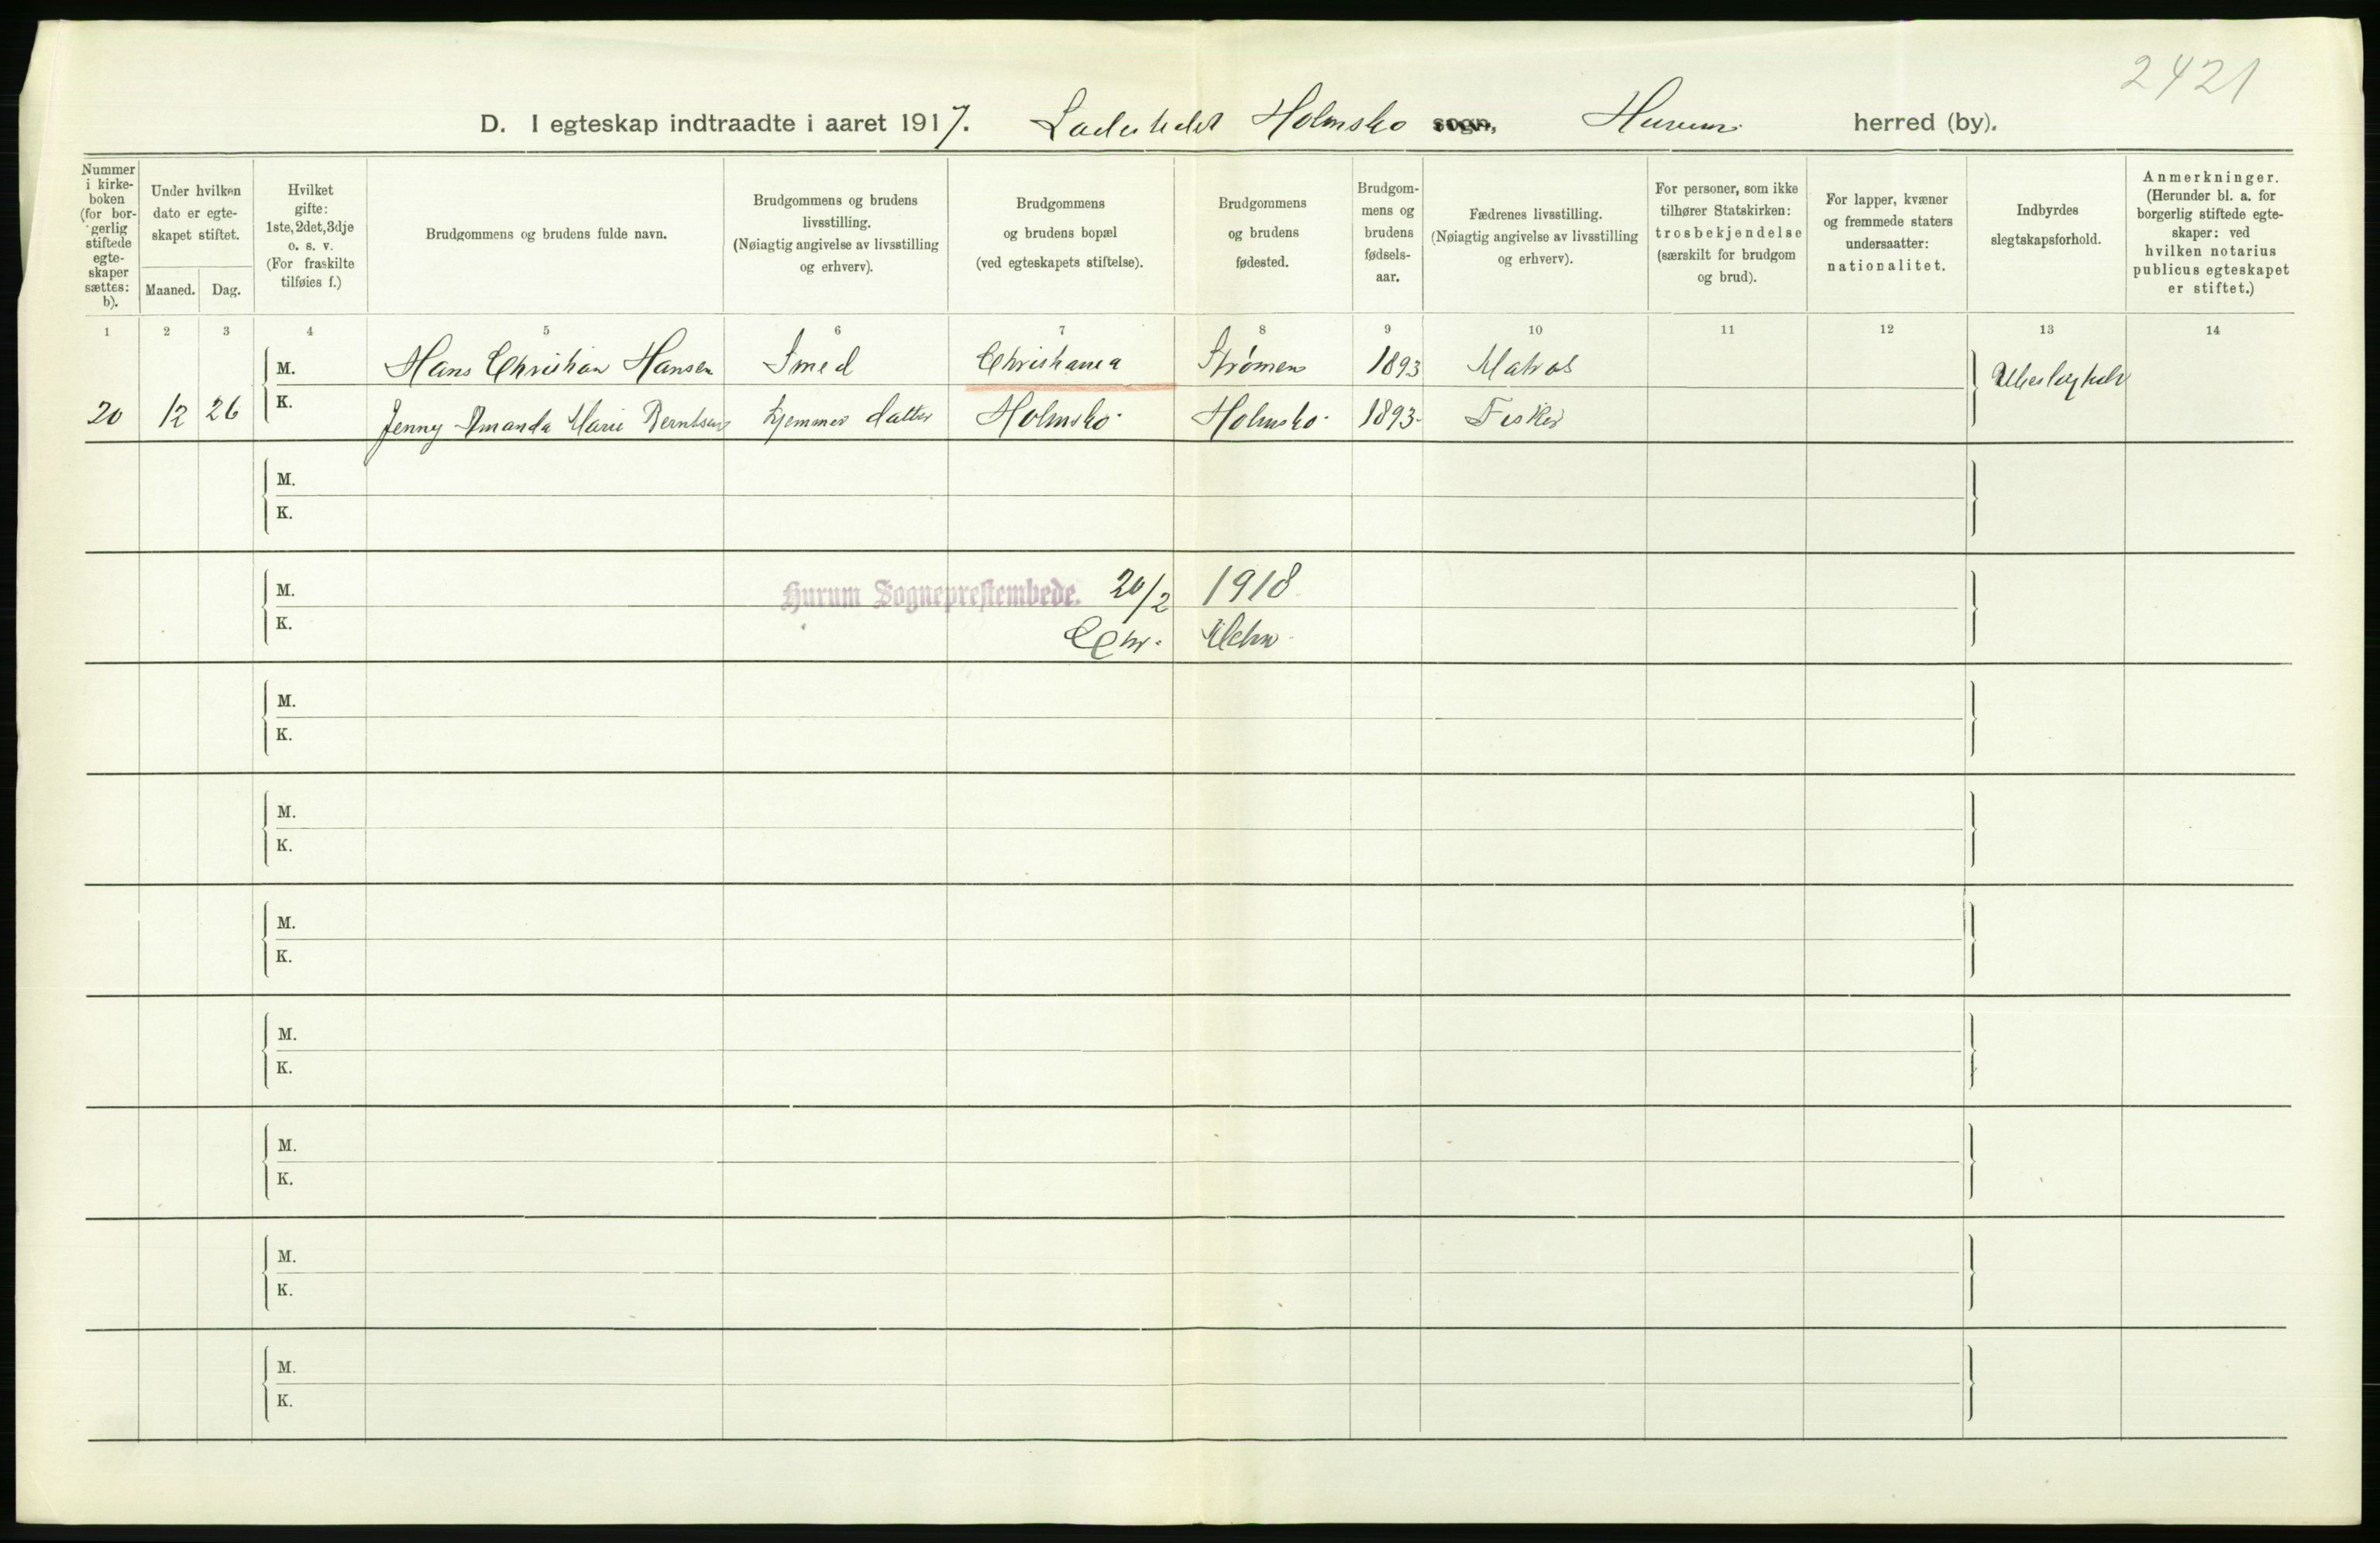 2421
D. I egteskap indtraadte i aaret 1917. Ladestedet Holmsbo sogn, Hurum herred (by).
Nummer
i kirke-
boken
(for bor-
gerlig
stiftede
egte-
skaper
sættes:
b).
Under hvilken
dato er egte-
skapet stiftet.
Maaned. Dag.
Hvilket
gifte:
1ste, 2det, 3dje
o. s. v.
(For fraskilte
tilføies f.)
Brudgommens og brudens fulde navn.
Brudgommens og brudens
livsstilling.
(Nøiagtig angivelse av livsstilling
og erhverv).
Brudgommens
og brudens bopæl
(ved egteskapets stiftelse).
Brudgommens
og brudens
fødested.
Brudgom-
mens og
brudens
fødsels-
aar.
Fædrenes livsstilling.
(Nøiagtig angivelse av livsstilling
og erhverv).
For personer, som ikke
tilhører Statskirken:
trosbekjendelse
(særskilt for brudgom
og brud).
For lapper, kvæner
og fremmede staters
undersaatter:
nationalitet.
Indbyrdes
slegtskapsforhold.
Anmerkninger.
(Herunder bl. a. for
borgerlig stiftede egte-
skaper: ved
hvilken notarius
publicus egteskapet
er stiftet.)
1 2 3 4 5 6 7 8 9 10 11 12 13 14
M. Hans Christian Hansen Smed Christiania Strømm 1893 Matros Ubeslegtede
20 12 26 K. Jenny Amanda Marie Berntsen hjemmev datter Holmsbo Holmsbo 1893 Fisker
M.
K.
M. Hurum Sogneprestembede. 20/2 1918
K. Chr.
M.
K.
M.
K.
M.
K.
M.
K.
M.
K.
M.
K.
M.
K.